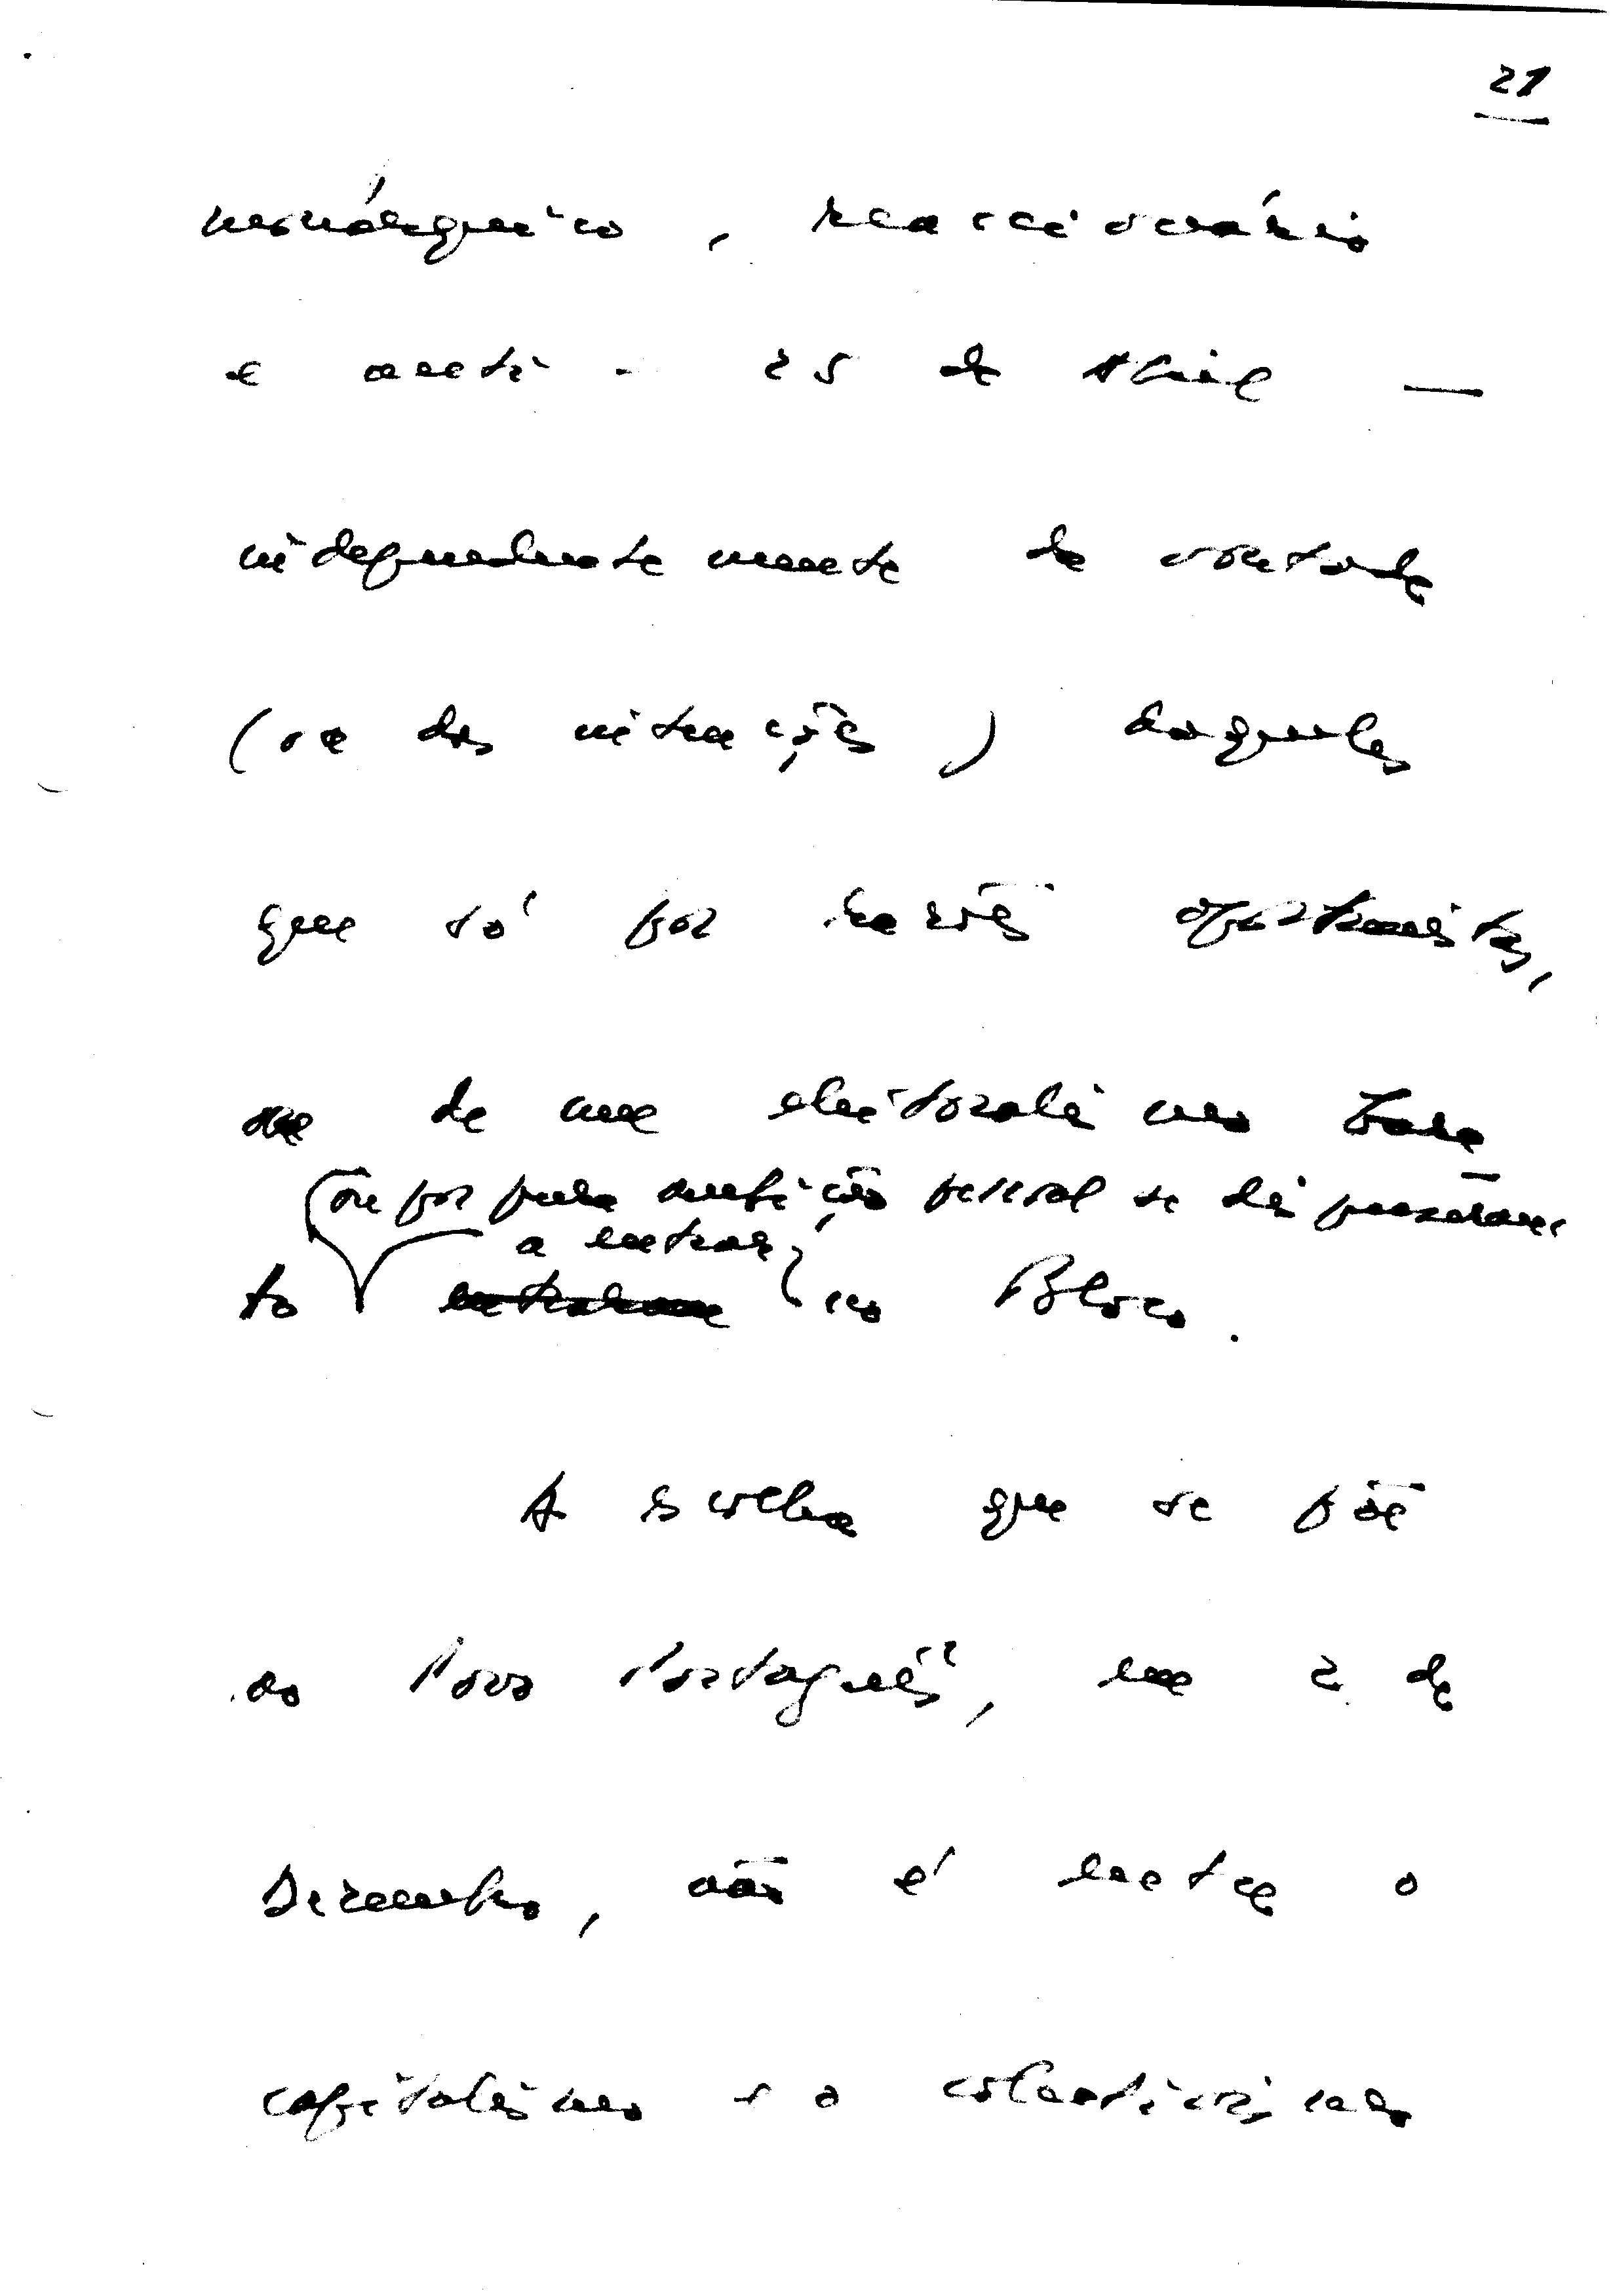 21
monárquico, reaccionário
e anti-25 de Abril —
independentemente da vontade
(ou das intenções) daqueles
que só por razões oportunistas,
ou de um eleitoralismo
(ou por pura ambição pessoal se dispuseram
a entrar)
to no Bloco.
A escolha que se põe
ao Povo Português, em 2 de
Dezembro, não é entre o
capitalismo e o colectivismo